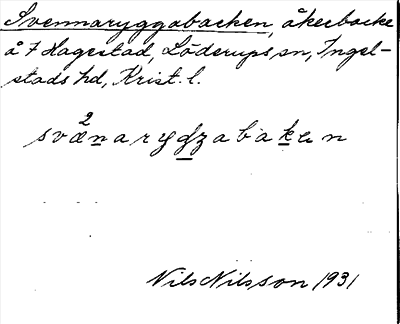 Svennaryggabacken, åkerbacke
å 7 Hagestad, Löderups sn, Ingel-
stads hd, Krist. l.
2
svænarygʒabaken
Nils Nilsson 1931